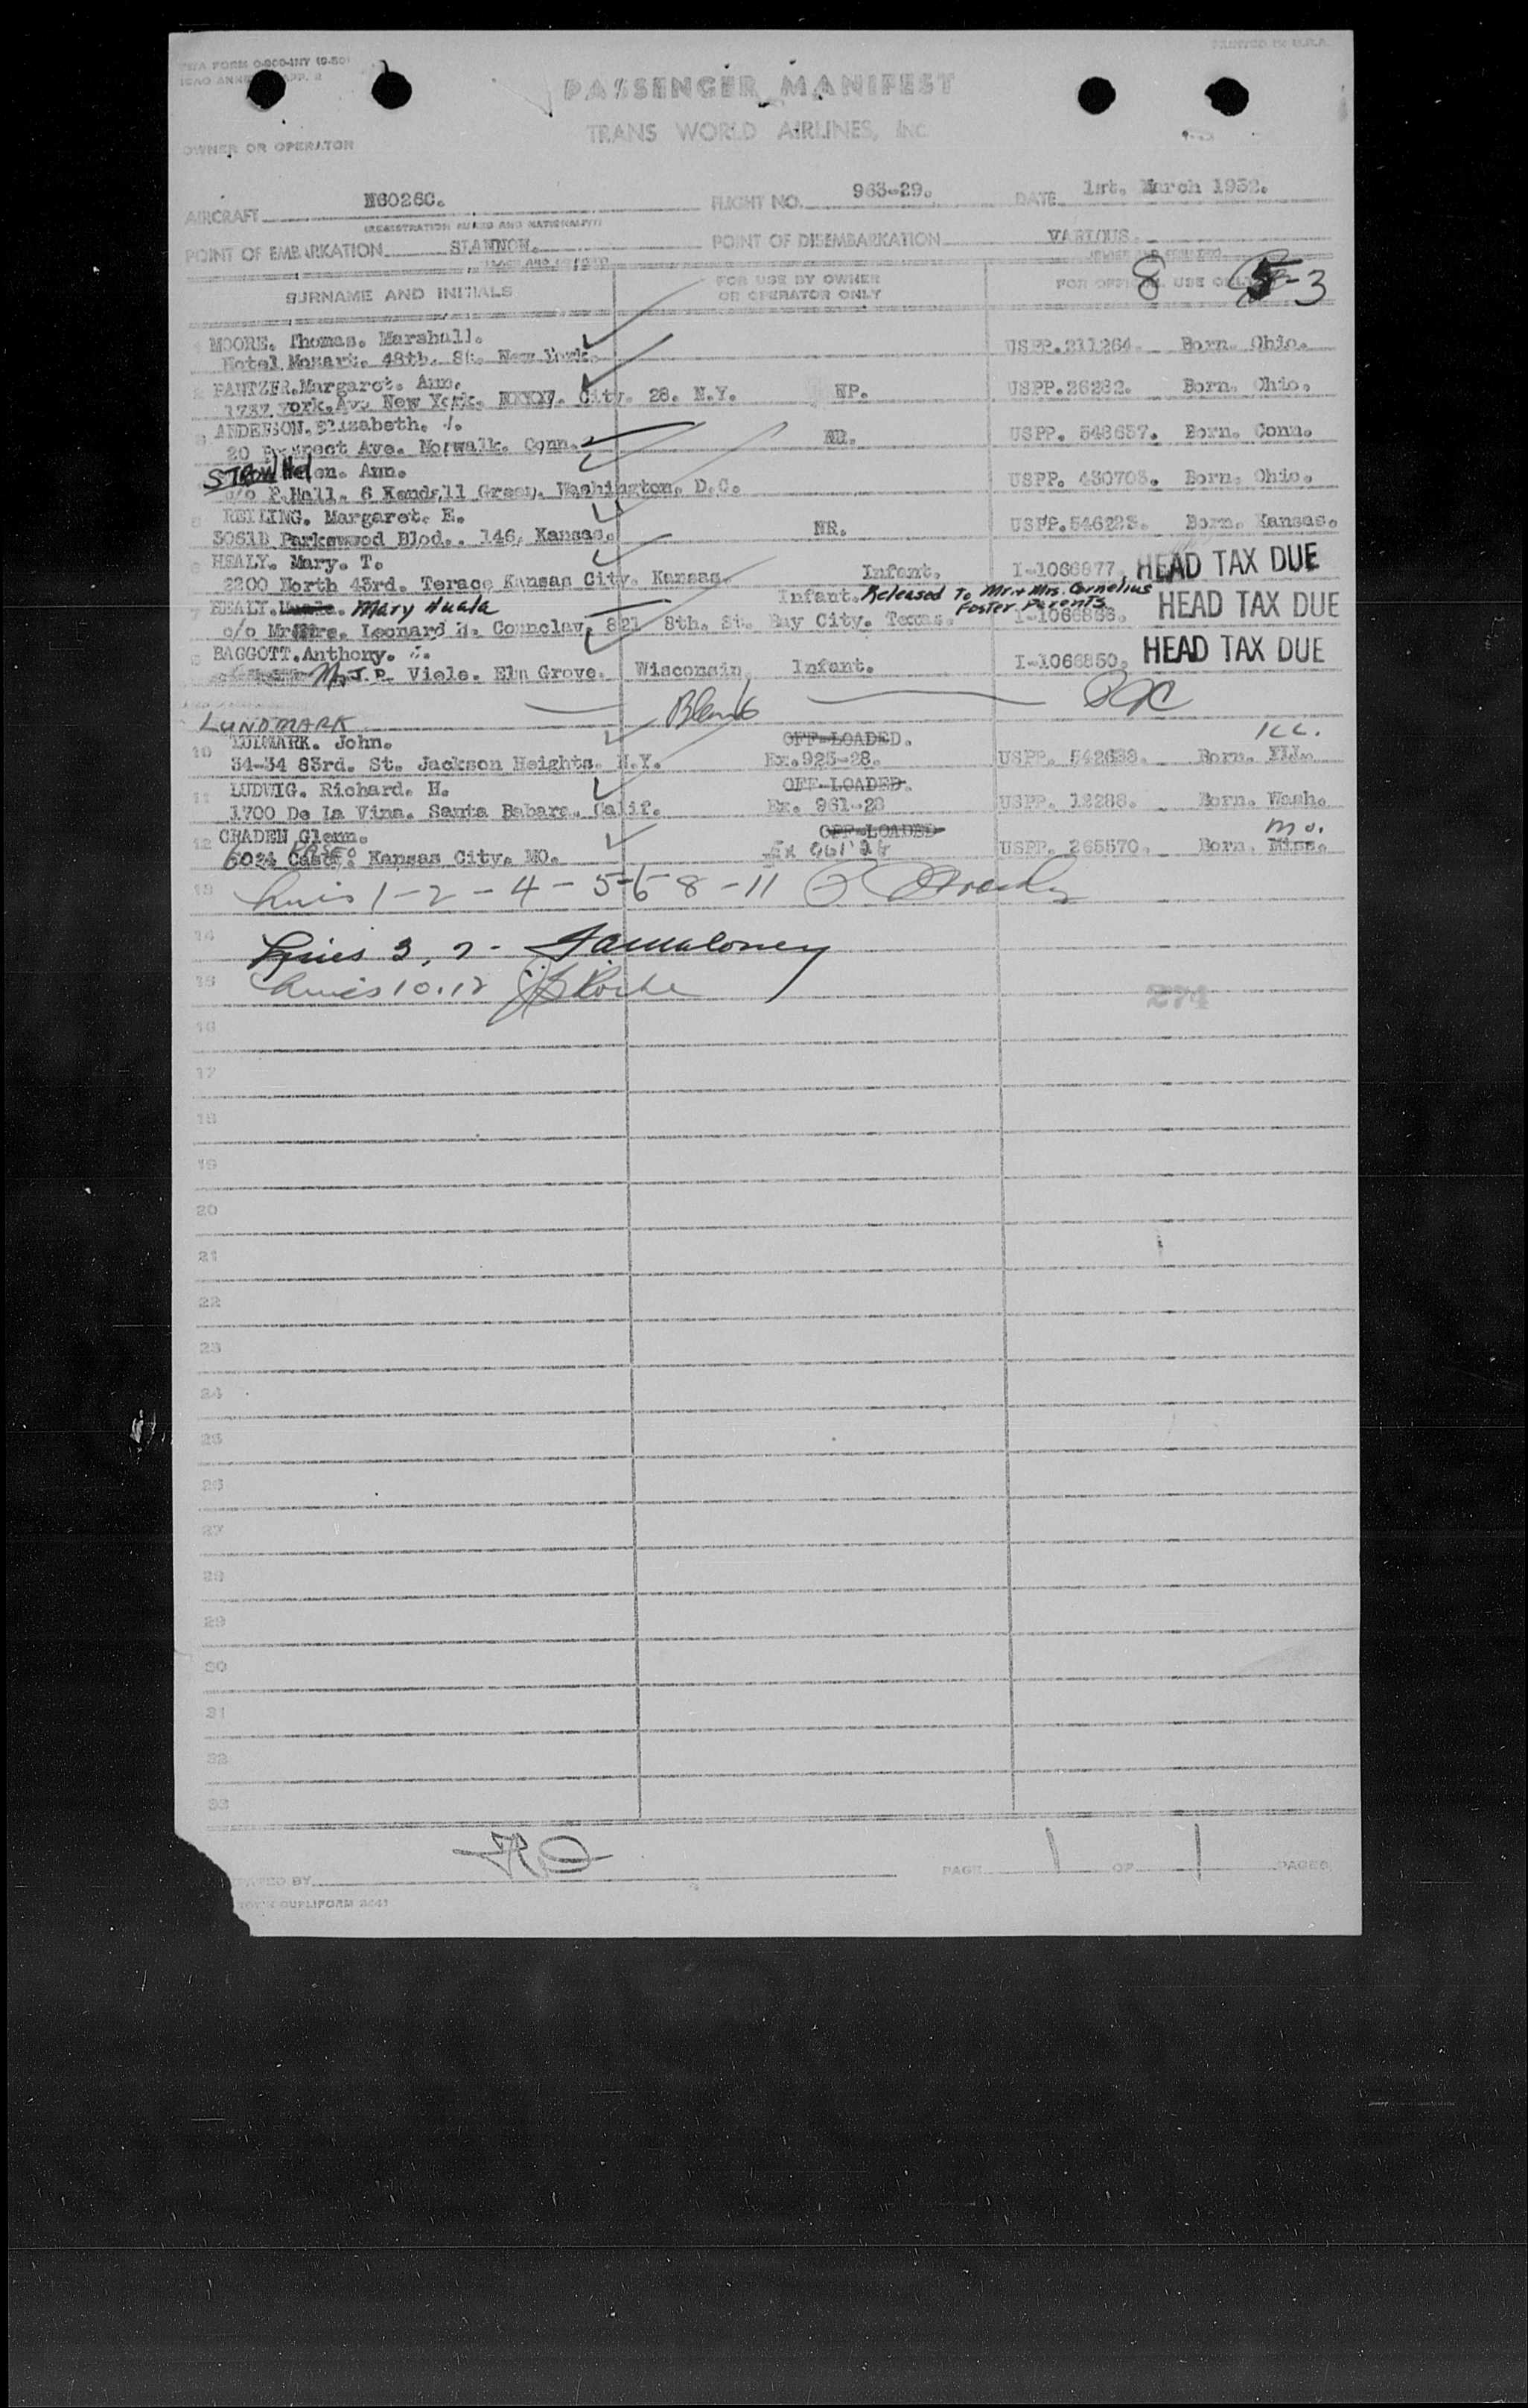 PRINTED IN U.S.A.
PASSENGER MANIFEST
TRANS WORLD AIRLINES, INC
OWNER OR OPERATOR
AIRCRAFT N6026C. FLIGHT NO. 963-29. DATE 1st. March 1952.
(REGISTRATION MARKS AND NATIONALITY)
POINT OF EMBARKATION SHANNON. POINT OF DISEMBARKATION VARIOUS.
SURNAME AND INITIALS FOR USE BY OWNER OR OPERATOR ONLY FOR OFFICIAL USE ONLY 8 5-3
1 MOORE. Thomas. Marshall.
Hotel Mozart. 48th. St. New York. USPP.211264. Born. Ohio.
2 PANTZER.Margaret. Ann.
1737 York.Ave New York. City. 28. N.Y. NP. USPP.26282. Born. Ohio.
3 ANDERSON.Elizabeth.
20 Prospect Ave. Norwalk. Conn. USPP. 548657. Born. Conn.
STROW Helen. Ann.
c/o P.Hall. 6 Kendall Green. Washington. D.C. USPP. 430703. Born. Ohio.
5 REILING. Margaret. E.
3061B Parkswood Blod.. 146, Kansas. NR. USPP.546223. Born. Kansas.
6 HEALY. Mary. T.
2200 North 43rd. Terace Kansas City. Kansas. Infant. I-1066877. HEAD TAX DUE
7 HEALY. Mary Nuala Infant. Released To Mr + Mrs. Cornelius Foster Parents
c/o Mr Mrs. Leonard Connclav. 821 8th. St. Bay City. Texas. I-1066866. HEAD TAX DUE
8 BAGGOTT.Anthony.
Mr J.P. Viele. Elm Grove. Wisconsin Infant. I-1066850. HEAD TAX DUE
Blank
LUNDMARK
10 LUDMARK. John. OFF-LOADED. Ill.
34-34 83rd. St. Jackson Heights. N.Y. Ex.925-28. USPP. 542638. Born. Ill.
11 LUDWIG. Richard. H. OFF-LOADED.
1700 De La Vina. Santa Babara. Calif. Ex. 961-28 USPP. 12288. Born. Wash.
12 CRADEN Glenn. OFF-LOADED Mo.
6024 Kansas City. MO. Ex 961 28 USPP. 265570. Born. Miss.
13 Lines 1-2-4-5-6 8-11
14 Lines 3, 7-
15 Lines 10.12
274
16
17
18
19
20
21
22
23
24
25
26
27
28
29
30
31
32
33
BY PAGE 1 OF 1 PAGES